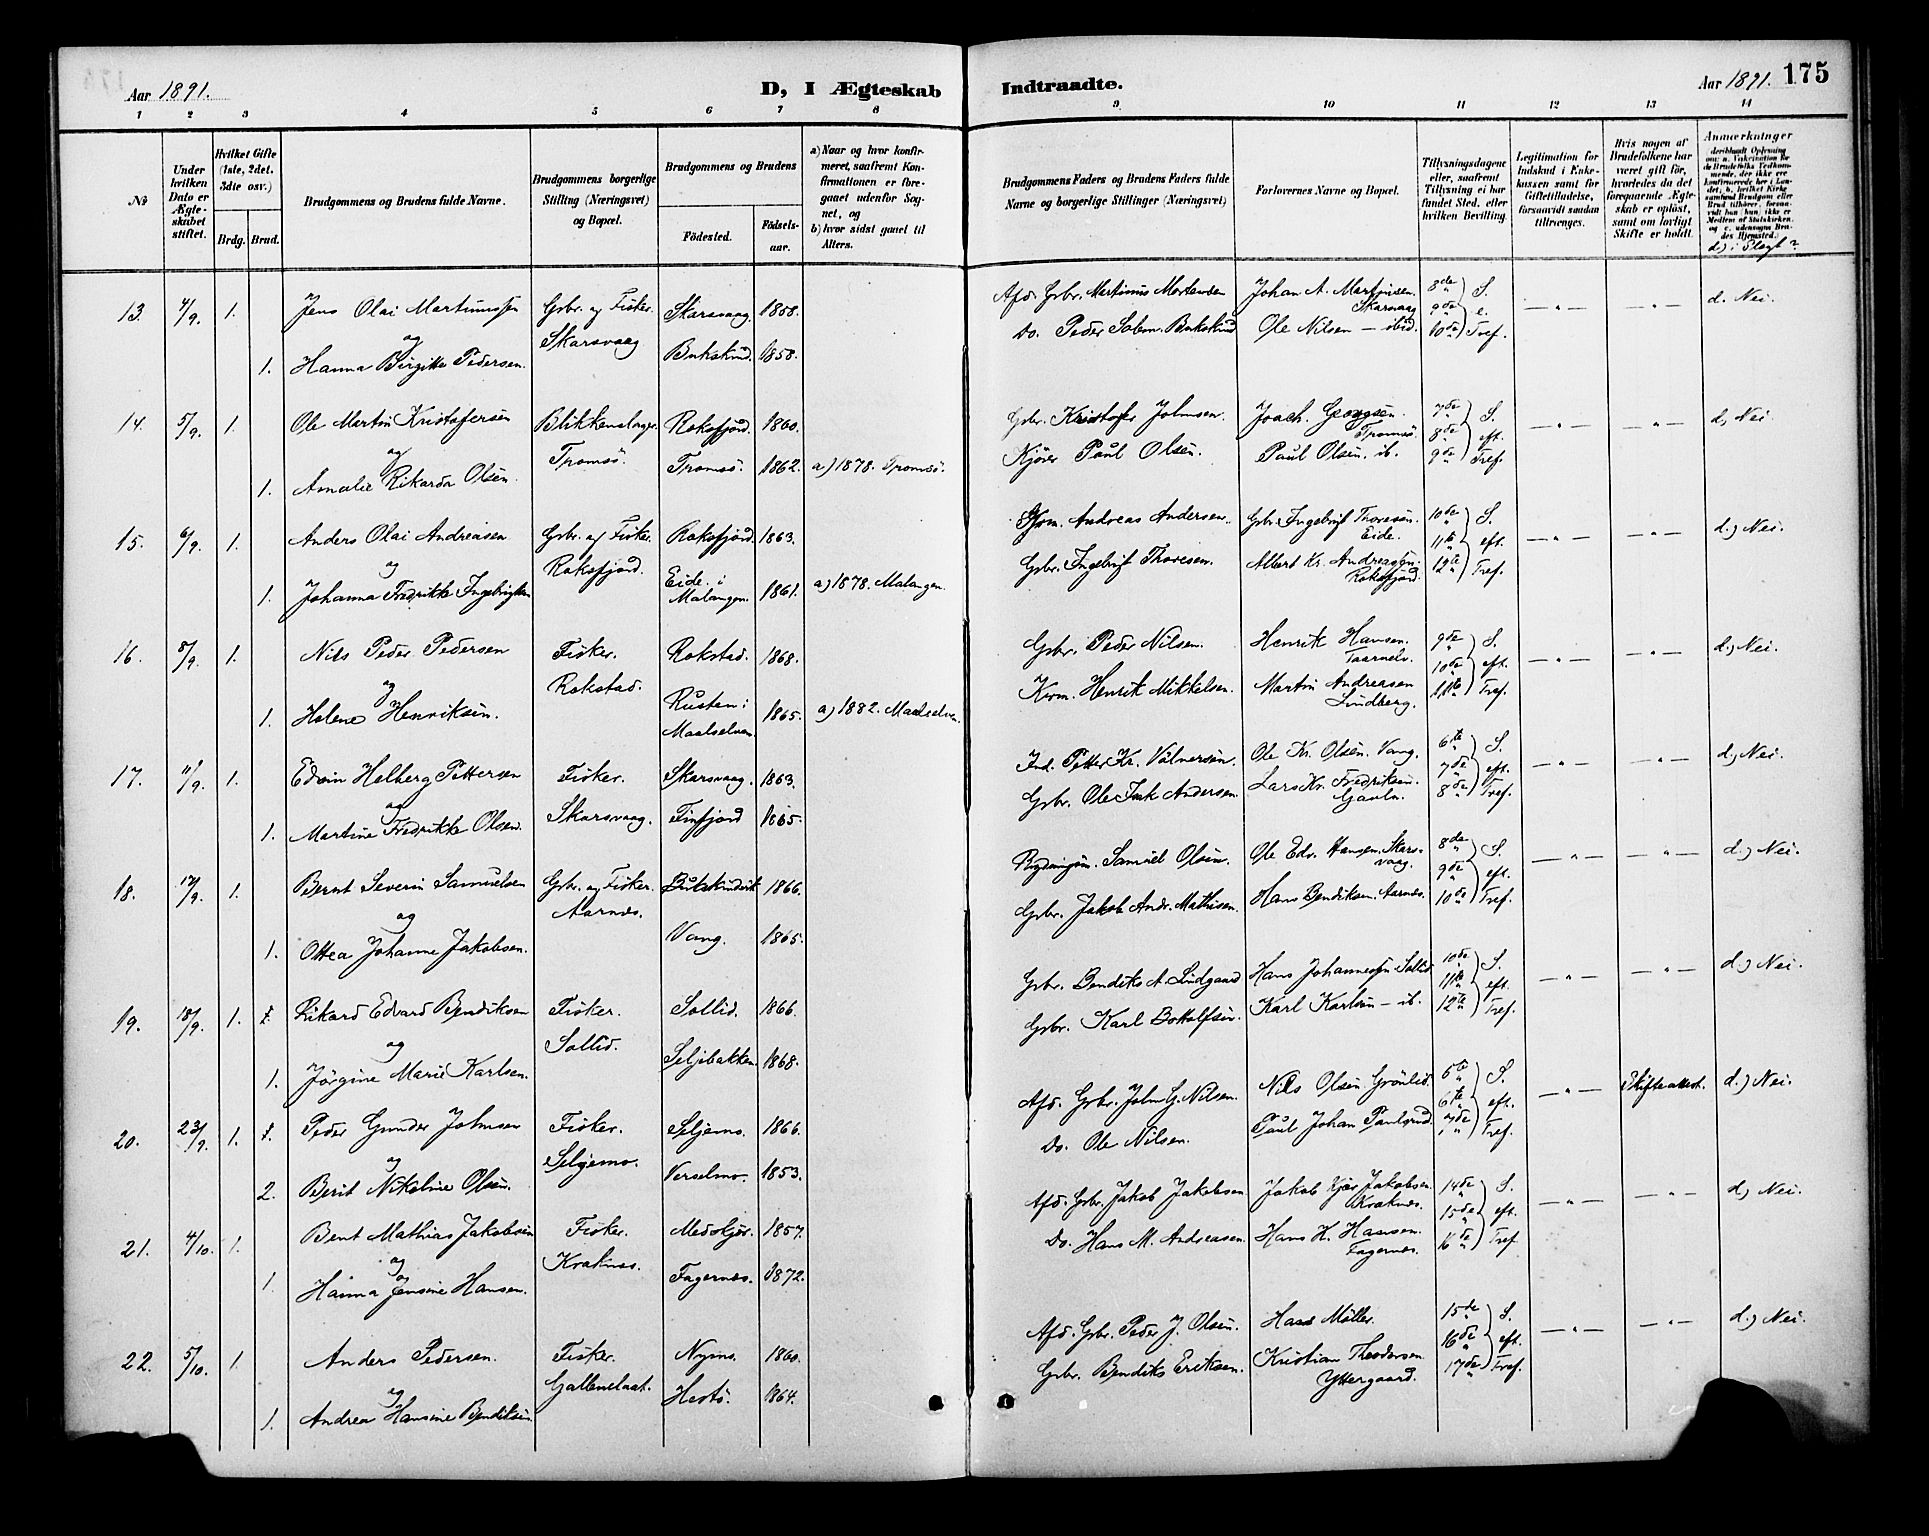 Aar 1891. D, I Ægteskab Indtraadte. Aar 1891. 175
1 2 3 4 5 6 7 8 9 10 11 12 13 14
No
Under hvilken Dato er Ægteskabet stiftet.
Hvilket Gifte (1ste, 2det. 3die osv.)
Brdg. Brud.
Brudgommens og Brudens fulde Navne.
Brudgommens borgerlige Stilling (Næringsvei) og Bopæl.
Brudgommens og Brudens
Födested. Födselsaar.
a) Naar og hvor konfirmeret, saafremt Konfirmationen er foregaaet udenfor Sognet, og
b) hvor sidst gaaet til Alters.
Brudgommens Faders og Brudens Faders fulde Navne og borgerlige Stillinger (Næringsvei)
Forlovernes Navne og Bopæl.
Tillysningsdagene eller, saafremt Tillysning ei har fundet Sted, efter hvilken Bevilling.
Legitimation for Indskud i Enkekassen samt for Giftetilladelse, forsaavidt saadan tiltrænges.
Hvis nogen af Brudefolkene har været gift för, hvorledes da det foregaaende Ægteskab er oplöst, samt om lovligt Skifte er holdt.
Anmærkninger
d.) i Slægt?
13. 4/9. 1. Jens Olai Martinussen Gbr. og Fisker. Skarsvaag. 1858. Afd. Gbr. Martinus Mortensen Johan A. Martinsen. Skarsvaag 8de S. d. Nei.
og Skarsvaag Do. Peder Salom. Bukskind Ole Nilsen — ibid. 9de e.
1. Hanna Birgitte Pedersen. Bukskind. 1858. 10de Tref.
14. 5/9. 1. Ole Martin Kristofersen Blikkenslager. Roksfjord. 1860. Gbr. Kristofer Johnsen. Joach. Georgsen. Tromsö. 7de S. d, Nei.
og Tromsö. Tromsö. 1862. a) 1878. Tromsö. Kjörer Paul Olsen. Paul Olsen. ib. 8de eft.
1. Amalie Rikarda Olsen. 9de Tref.
15. 6/9. 1. Anders Olai Andreasen Gbr. og Fisker. Roksfjord. 1863. Andreas Andersen. Gbr. Ingebrigt Thoresen. Eide. 10de S. d.) Nei.
og Roksfjord. Eide. i Malangen. 1861. a) 1878. Malangen. Gbr. Ingebrigt Thoresen. Albert Kr. Andreassen. Roksfjord. 11te eft.
1. Johanna Fredrikke Ingebrigtsen 12te Tref.
16. 8/9. 1. Nils Peder Pedersen Fisker. Rokstad. 1868. Gbr. Peder Nilsen. Henrik Hansen. Taarnelv. 9de S. d.) Nei.
og Rokstad. Rusten i Maalselven. 1865. a) 1882. Maalselven. Henrik Mikkelsen. Martin Andreasen Lindberg. 10de eft.
1. Helene Henriksen. 11te Tref.
17. 11/9. 1. Edvin Helberg Pettersen Fisker. Skarsvaag. 1863. Ind. Petter Kr. Volnersen. Ole Kr. Olsen. Vang. 6te S. d.) Nei.
og Skarsvaag. Finfjord 1865. Gbr. Ole Andersen. Lars Kr. Fredriksen. 7de eft.
1. Martine Fredrikke Olsen. 8de Tref.
18. 12/9. 1. Bernt Severin Samuelsen Gbr. og Fisker. 1866. Samuel Olsen. Ole Edv. Hansen. Skarsvaag. 8de S. d.) Nei.
og Aarnes. Vang. 1865. Gbr. Jakob Andr. Mathisen. Hans Bendiksen. Aarnes. 9de eft.
1. Ottea Johanne Jakobsen. 10de Tref.
19. 18/9. 1. Rikard Edvard Bendiksen Fisker. Sollid. 1866. Gbr. Bendiks A. Lindgaard Hans Johannessen Sollid. 10de S. d.) Nei.
og Sollid. Seljebakken. 1868. Gbr. Karl Bottolfsen. Karl Karlsen — ib. 11te eft.
1. Jörgine Marie Karlsen. 12te Tref.
20. 23/9. 1. Peder Gunder Johnsen Fisker. Seljemo. 1866. Afd. Gbr. John G. Nilsen. Nils Olsen Grönlid. 5te S. Skifteattest. d.) Nei.
og Seljemo. Verselmo. 1853. Do. Ole Nilsen. Paul Johan Paulsrud. 6te eft.
2. Berit Nikoline Olsen. 7de Tref.
21. 4/10. 1. Bent Mathias Jakobsen Fisker. Medskjær. 1857. Afd. Gbr. Jakob Jakobsen Jakob Kjær Jakobsen Kraknes. 14de S. d.) Nei.
og Kraknes. Fagernes. 1872. Do. Hans M. Andreasen. Hans H. Hansen. Fagernes. 15de eft.
1. Hanna Jensine Hansen. 16de Tref.
22. 5/10. 1. Anders Pedersen. Fisker. Nymo. 1860. Afd. Gbr. Peder J. Olsen. Hans Möller. 15de S. d.) Nei.
og Hestö. 1864. Gbr. Bendiks Eriksen. Kristian Theodorsen Yttergaard. 16de eft.
1. Andrea Hansine Bendiksen 17de Tref.